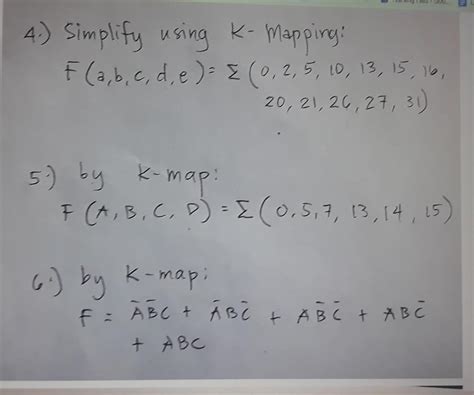 4.) Simplify using K-Mapping:
F(a,b,c,d,e) = Σ(0, 2, 5, 10, 13, 15, 16,
20, 21, 26, 27, 31)
5.) by K-map:
F(A, B, C, D) = Σ(0, 5, 7, 13, 14, 15)
6.) by K-map:
F = A̅B̅C + A̅BC̅ + AB̅C̅ + ABC̅
+ ABC